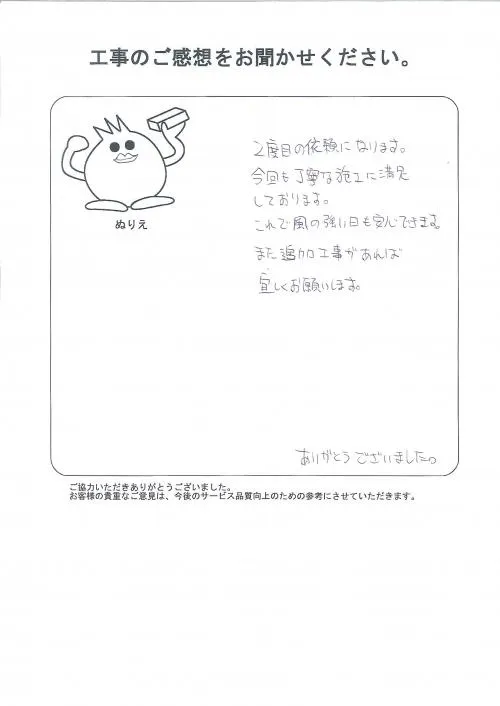 工事のご感想をお聞かせください。
ぬりえ
2度目の依頼になります。
今回も丁寧な施工に満足
しております。
これで風の強い日も安心できます。
また追加工事があれば
宜しくお願いします。
ありがとうございました。
ご協力いただきありがとうございました。
お客様の貴重なご意見は、今後のサービス品質向上のための参考にさせていただきます。